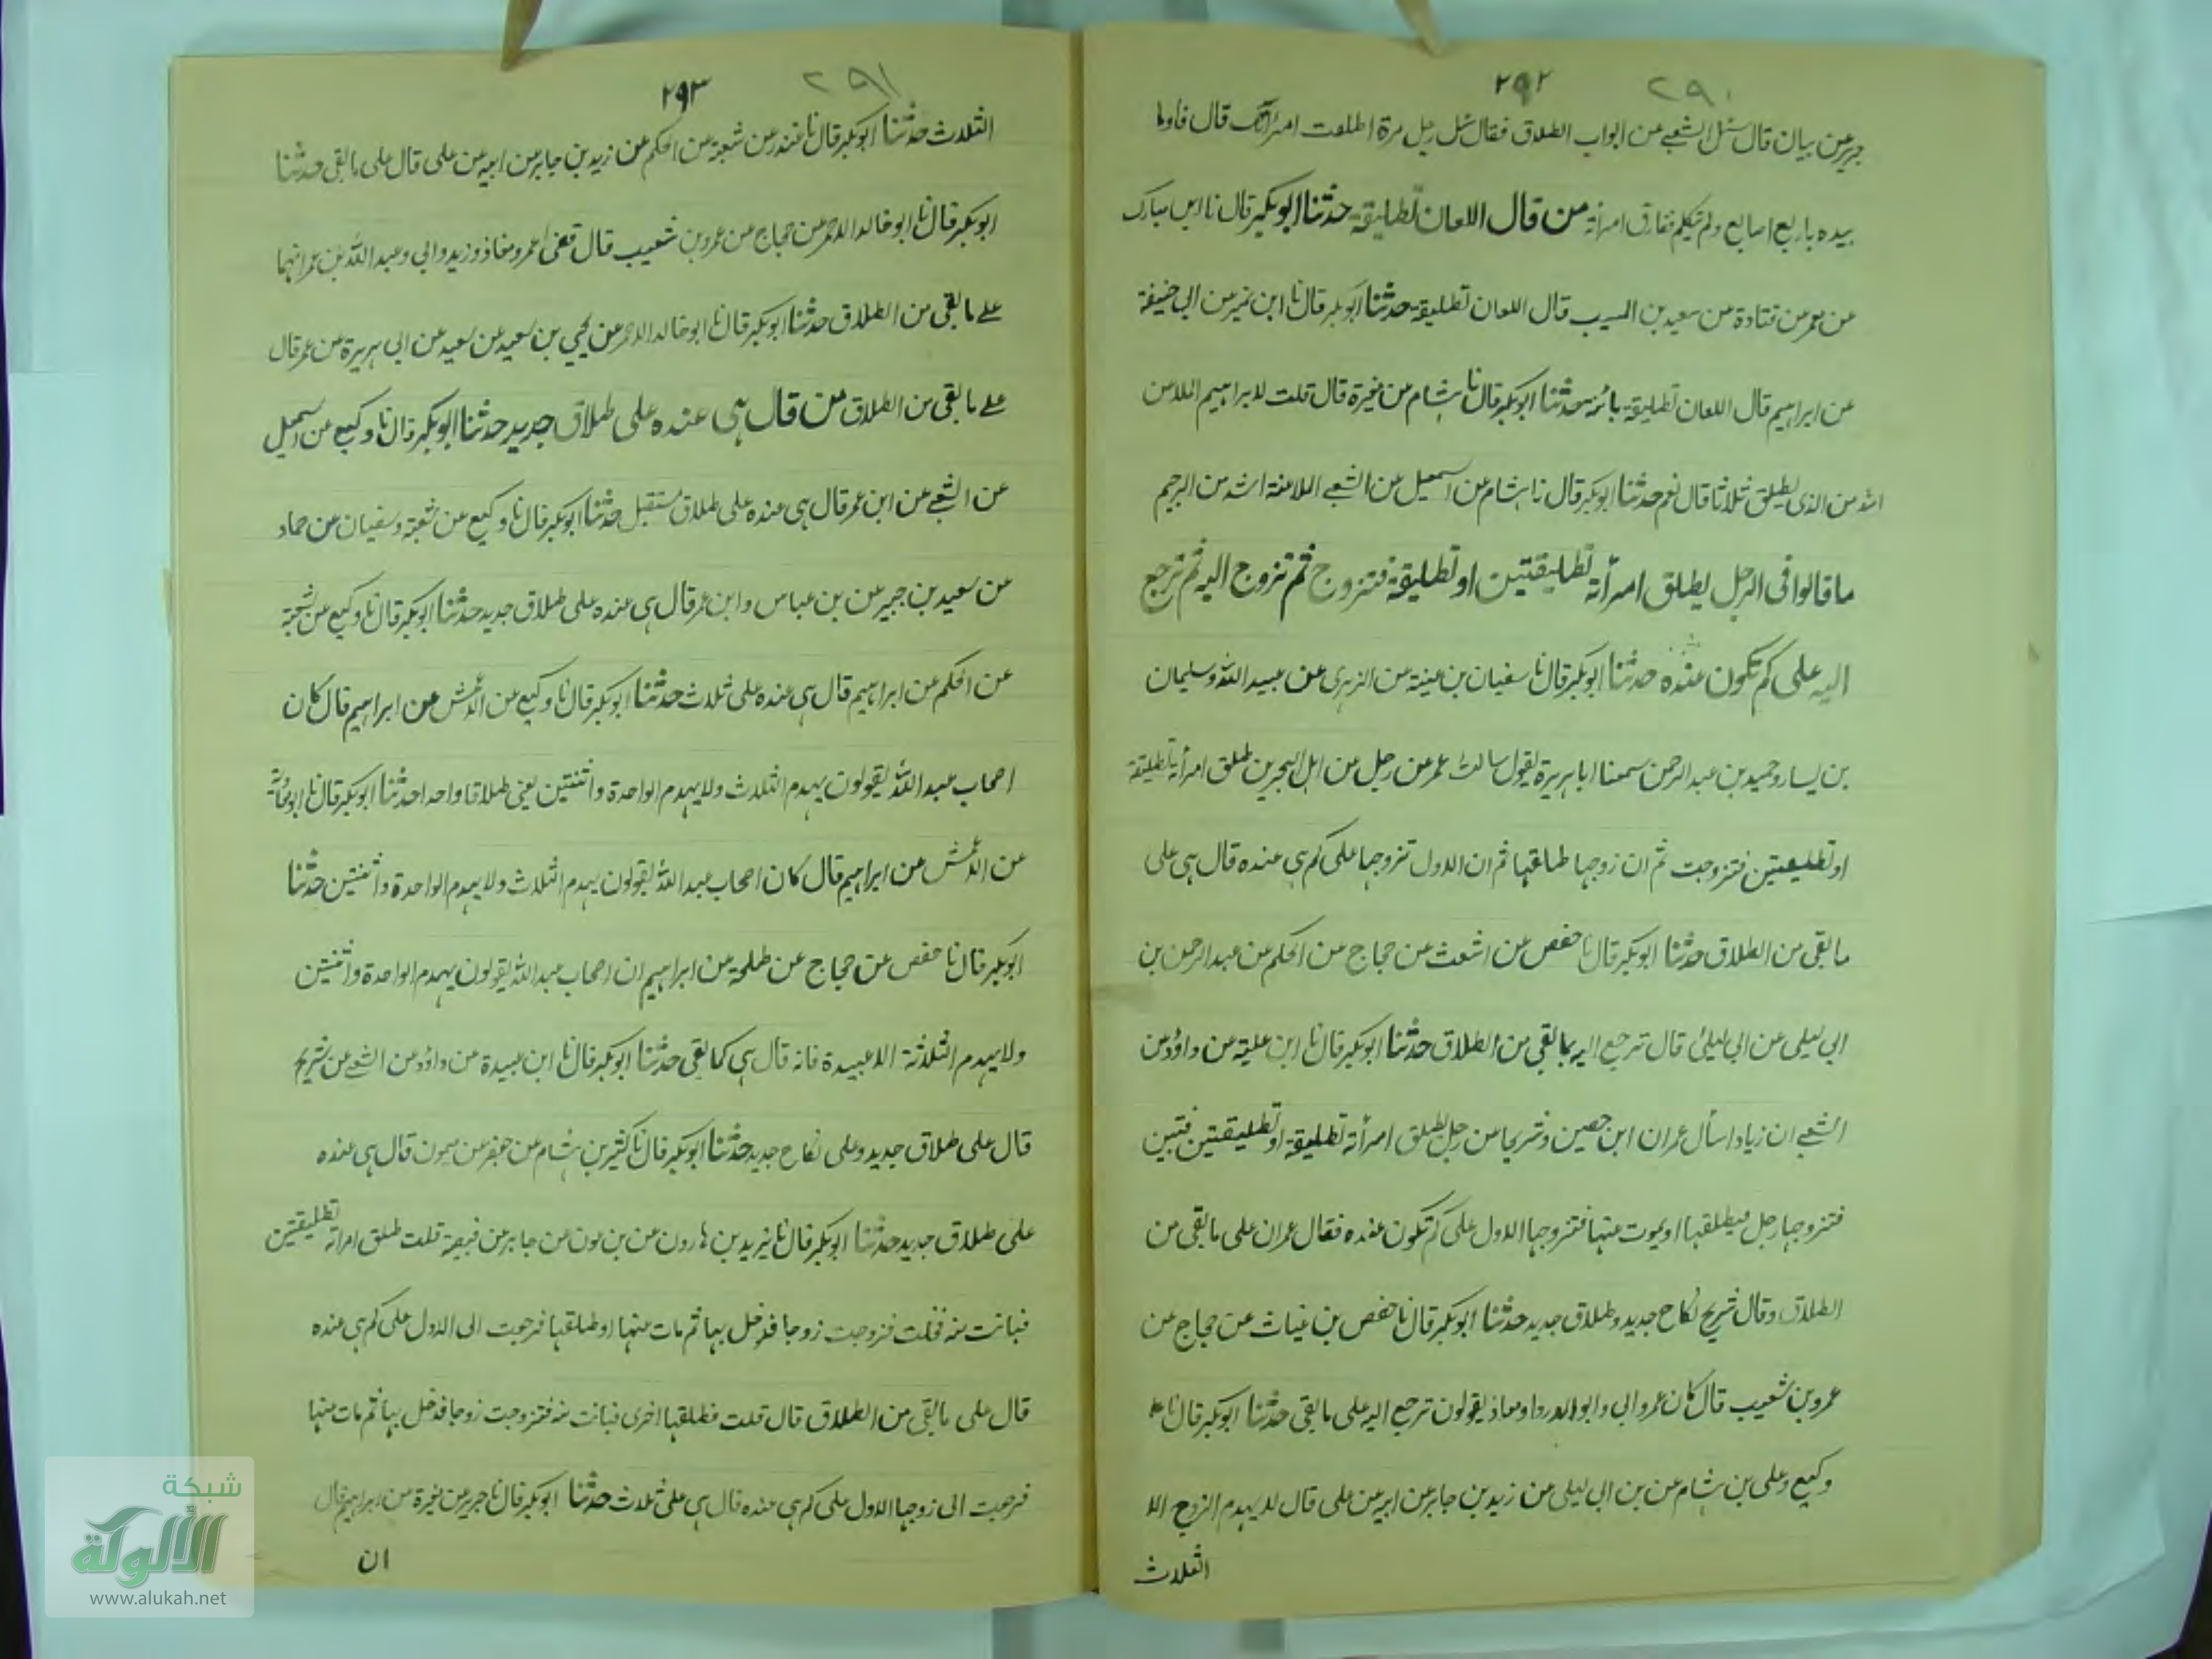 ٢٩٢ ٢٩٠
جرير عن بيان قال سئل الشعبي عن ابواب الطلاق فقال سئل رجل مرة اطلقت امرأتك قال فاوما
بيده باربع اصابع ولم يتكلم ففارق امرأته من قال اللعان تطليقة حدثنا ابو بكر قال نا ابن مبارك
عن معمر عن قتادة عن سعيد بن المسيب قال اللعان تطليقة حدثنا ابو بكر قال نا ابن نمير عن ابي حنيفة
عن ابراهيم قال اللعان تطليقة بائنة حدثنا ابو بكر قال نا هشام عن مغيرة قال قلت لابراهيم الملاعن
اشد من الذي يطلق ثلاثا قال نعم حدثنا ابو بكر قال نا هشام عن اسمعيل عن الشعبي الملاعنة اشد من الرجم
ما قالوا في الرجل يطلق امرأته تطليقتين او تطليقة فتزوج ثم تزوج اليه ثم ترجع
اليه على كم تكون عنده حدثنا ابو بكر قال نا سفيان بن عيينة عن الزهري عن عبيد الله وسليمان
بن يسار وحميد بن عبد الرحمن سمعنا ابا هريرة يقول سالت عمر عن رجل من اهل البحرين طلق امرأته تطليقة
او تطليقتين فتزوجت ثم ان زوجها طلقها ثم ان الاول تزوجها على كم هي عنده قال هي على
ما بقي من الطلاق حدثنا ابو بكر قال نا حفص عن اشعث عن حجاج عن الحكم عن عبد الرحمن بن
ابي ليلى عن ابي ليلى قال ترجع اليه بما بقي من الطلاق حدثنا ابو بكر قال نا ابن علية عن داؤد عن
الشعبي ان زيادا سأل عمران ابن حصين وشريحا عن رجل طلق امرأته تطليقة او تطليقتين فتبين
فتزوجها رجل فيطلقها او يموت عنها فتزوجها الاول على كم تكون عنده فقال عمران على ما بقي من
الطلاق وقال شريح نكاح جديد وطلاق جديد حدثنا ابو بكر قال نا حفص بن غياث عن حجاج عن
عمرو بن شعيب قال كان عمر وابي وابو الدرداء ومعاذ يقولون ترجع اليه على ما بقي حدثنا ابو بكر قال نا
وكيع وعلى بن هشام عن بن ابي ليلى عن زيد بن جابر عن ابيه عن علي قال لا يهدم الزوج الا
الثلاث
٢٩٣ ٢٩١
الثلاث حدثنا ابو بكر قال نا غندر عن شعبة عن الحكم عن زيد بن جابر عن ابيه عن علي قال على ما بقي حدثنا
ابو بكر قال نا ابو خالد الاحمر عن حجاج عن عمرو بن شعيب قال قضى عمر ومعاذ وزيد وابي وعبد الله بن عمر انهما
على ما بقي من الطلاق حدثنا ابو بكر قال نا ابو خالد الاحمر عن يحيي بن سعيد عن سعيد عن ابي هريرة عن عمر قال
على ما بقي من الطلاق من قال هي عنده على طلاق جديد حدثنا ابو بكر قال نا وكيع عن اسمعيل
عن الشعبي عن ابن عمر قال هي عنده على طلاق مستقبل حدثنا ابو بكر قال نا وكيع عن شعبة وسفيان عن حماد
عن سعيد بن جبير عن بن عباس وابن عمر قال هي عنده على طلاق جديد حدثنا ابو بكر قال نا وكيع عن شعبة
عن الحكم عن ابراهيم قال هي عنده على ثلاث حدثنا ابو بكر قال نا وكيع عن الاعمش عن ابراهيم قال كان
اصحاب عبد الله يقولون يهدم الثلاث ولا يهدم الواحدة واثنتين يعني طلاقا واحدا حدثنا ابو بكر قال نا ابو معاوية
عن الاعمش عن ابراهيم قال كان اصحاب عبد الله يقولون يهدم الثلاث ولا يهدم الواحدة واثنتين حدثنا
ابو بكر قال نا حفص عن حجاج عن طلحة عن ابراهيم ان اصحاب عبد الله يقولون يهدم الواحدة واثنتين
ولا يهدم الثلاثة الا عبيدة فانه قال هي كما بقي حدثنا ابو بكر قال نا ابن عبيدة عن داؤد عن الشعبي عن شريح
قال على طلاق جديد وعلى نكاح جديد حدثنا ابو بكر قال نا كثير بن هشام عن جعفر عن ميمون قال هي عنده
على طلاق جديد حدثنا ابو بكر قال نا يزيد بن هارون عن بن عون عن جابر عن قبيصة قلت طلق امراته تطليقتين
فبانت منه فخلت فتزوجت زوجا فدخل بها ثم مات عنها او طلقها فرجعت الى الاول على كم هي عنده
قال على ما بقي من الطلاق قال قلت فطلقها اخرى فبانت منه فتزوجت زوجا فدخل بها ثم مات عنها
فرجعت الى زوجها الاول على كم هي عنده قال هي على ثلاث حدثنا ابو بكر قال نا جرير عن مغيرة عن ابراهيم قال
ان
شبكة
الألوكة
www.alukah.net